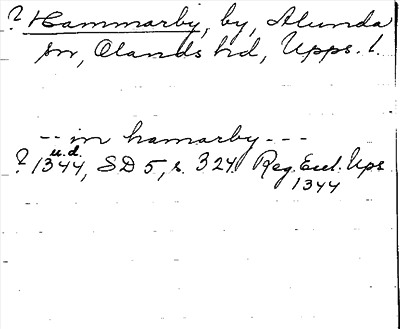 ? Hammarby, by, Alunda
sn, Olands hd, Upps. l.
-- in hamarby ---
u.d.
? 1344, SD 5, s. 324. Reg. Eccl. Ups
1344